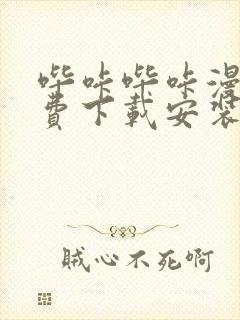 哔咔哔咔漫
费下载安装
贼心不死啊